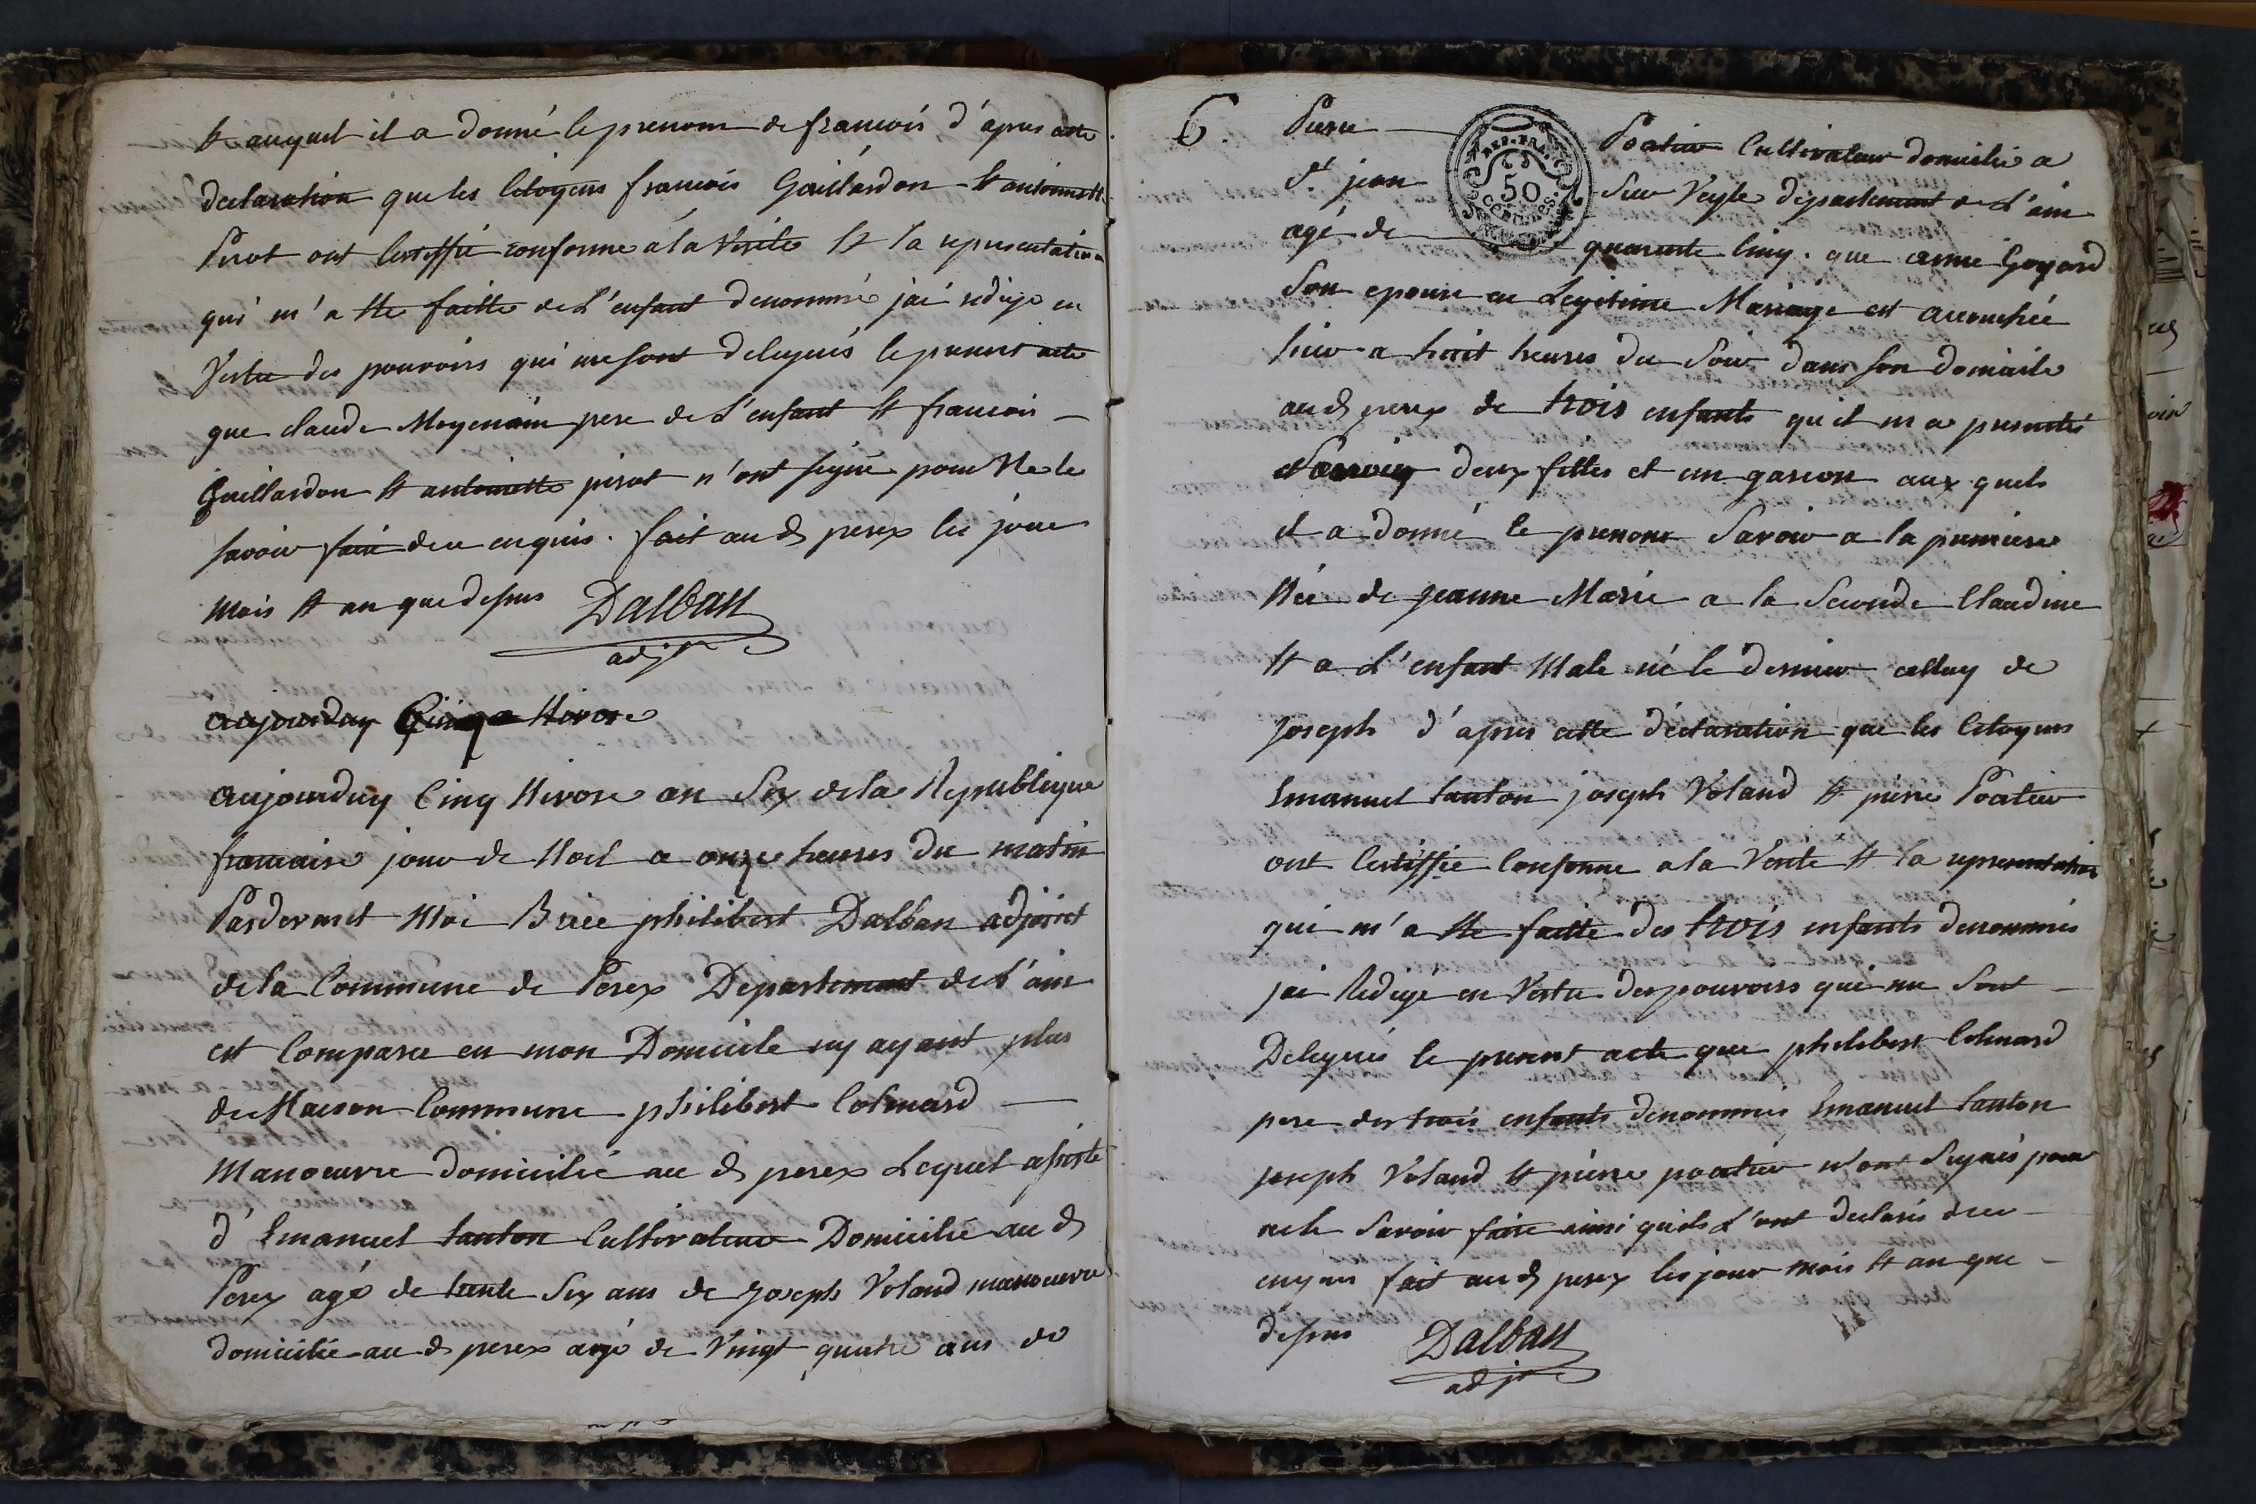 & auquel il a donné le prenom de francois d'apres cette
declaration que les Citoyens francois Gaillardon & antoinette
Pirot ont Certiffié conforme a la Verité & la representation
qui m'a ete faitte de L'enfant denommé jai redigé en
Vertu des pouvoirs qui me sont delegués le present acte
que claude Moyenain pere de L'enfant & francois
Gaillardon & antoinette pirot n'ont signé pour Ne le
savoir faire de ce enquis. fait au d perex les jour
Mois & an que dessus Dalban
adjt
aujourduy Cinq Nivose
aujourduy Cinq Nivose an Six de la Republique
francaise jour de Noel a onze heures du matin
Pardevant Moi Brice philibert Dalban adjoint
de la Commune de Perex Departement de L'ain
est Comparu en mon Domicile ny ayant plus
de Maison Commune philibert Colmard
Manoeuvre domicilié au d perex Lequel assisté
d'Emanuel tanton Cultivateur Domicilié au d
Perex agé de trente Six ans de Joseph Voland manoeuvre
domicilié au d perex agé de Vingt quatre ans de
6. Pierre Poatier Cultivateur domicilié a
St jean Sur Veyle departement de L'ain
agé de quarente Cinq. que anne Goyard
Son epouse en Legitime Mariage est accouchée
hier a huit heures du Soir dans son domicile
au d perex de trois enfants qu'il m'a presentés
Savoir deux filles et un garcon aux quels
il a donné le prenom Savoir a la premiere
Née de Jeanne Marie a la Seconde Claudine
& a L'enfant Male né le dernier celluy de
Joseph d'apres cette déclaration que les Citoyens
Emanuel tanton joseph Voland & pierre Poatier
ont Certiffié Conforme a la Verite & la representation
qui m'a ete faitte des trois enfants denommés
jai Redigé en Vertu des pouvoirs qui me Sont
Delegués le present acte que philibert Colmard
pere des trois enfants denommés Emanuel tanton
joseph Voland & pierre poatier n'ont Signés pour
ne le Savoir faire ainsi quils L'ont declarés de ce
enquis fait au d perex les jour mois & an que
dessus Dalban
adjt
REP. FRA.
50
CENTIMES